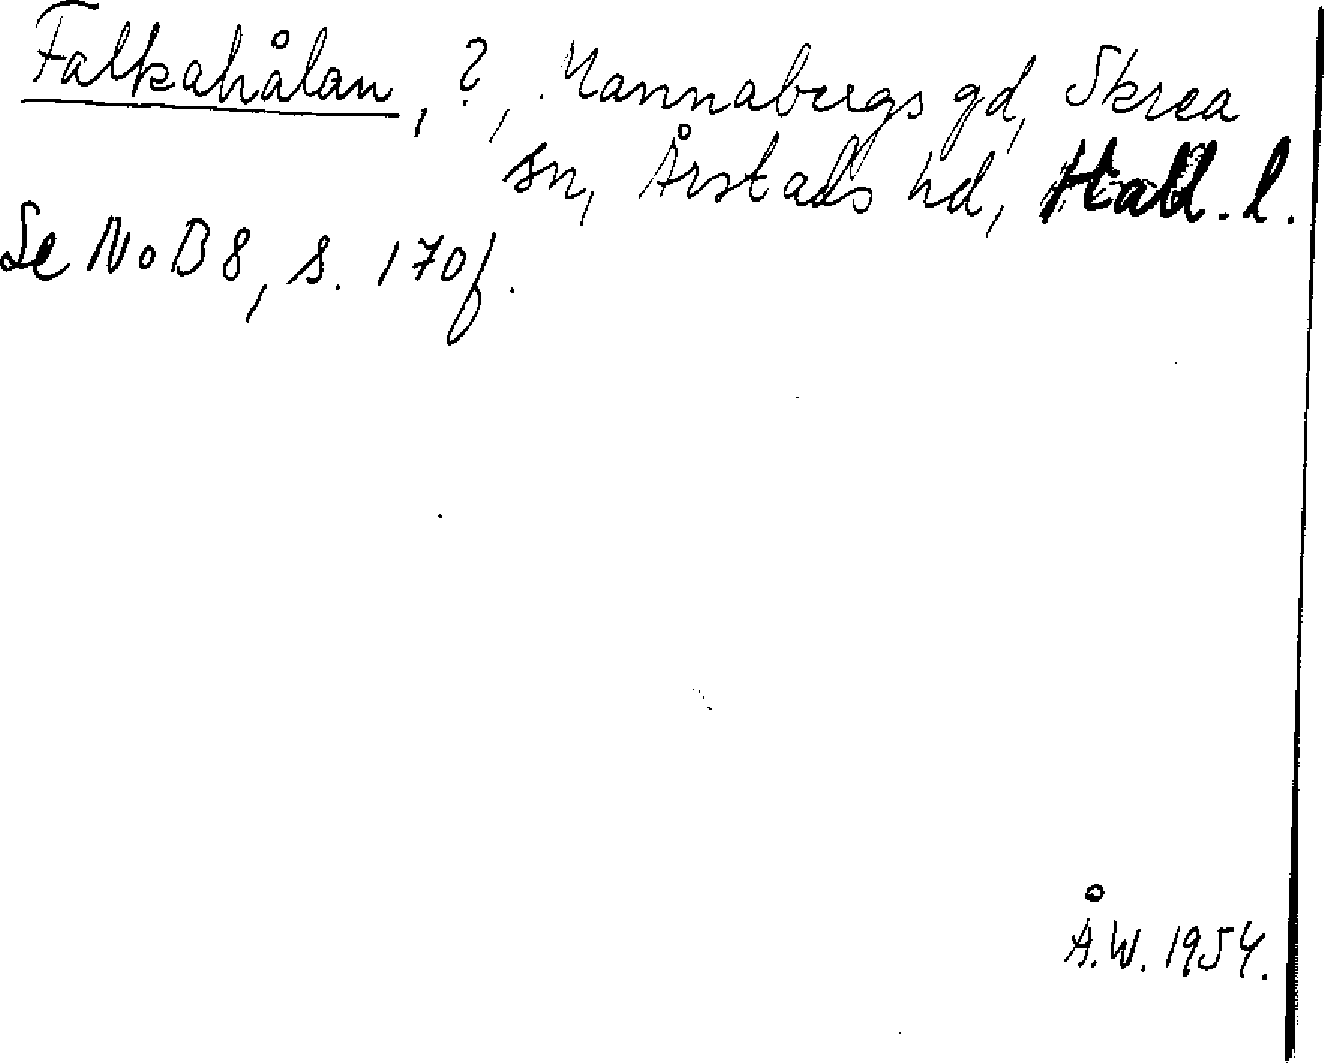 Falkahålan, ?, Mannabergs gd, Skrea
sn, Årstads hd, Hall. l.
Se NoB 8, s. 170 f.
Å.W. 1954.